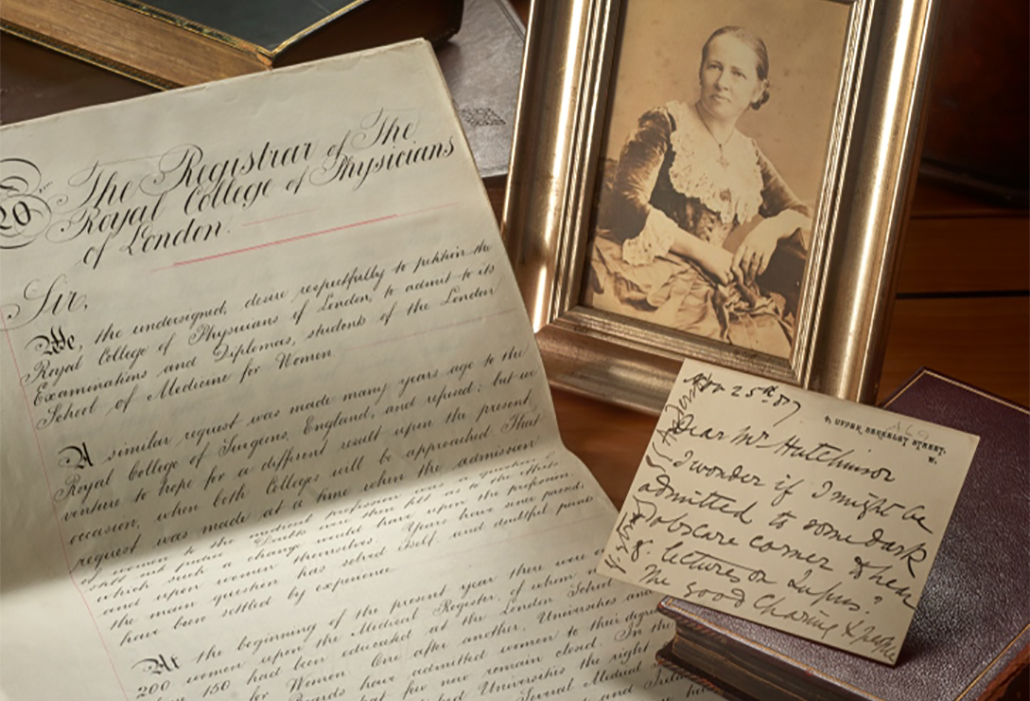 20
The Registrar of The
Royal College of Physicians
of London.
Sir,
We, the undersigned, desire respectfully to petition the
Royal College of Physicians of London, to admit to its
Examinations and Diplomas, students of the London
School of Medicine for Women.
A similar request was made many years ago to the
Royal College of Surgeons, England, and refused: but we
venture to hope for a different result upon the present
occasion, when both Colleges will be approached. That
request was made at a time when the admission
of women to the medical profession was a question
still not
which such a change would have upon the profession
and upon women themselves. Years have since passed,
the main question has solved itself, and doubtful points
have been settled by experience.
At the beginning of the present year there were
200 women upon the Medical Register, of whom
150 had been educated at the London School
for Women. One after another, Universities and
Boards have admitted women to their
but few now remain closed. In the
Universities the right
several Medical
Nov 25th 87
ALG
UPPER BERKELEY STREET.
W.
Dear Mr Hutchinson
I wonder if I might be
admitted to some dark
obscure corner & hear
lectures on Lupus?
The good Charing X people